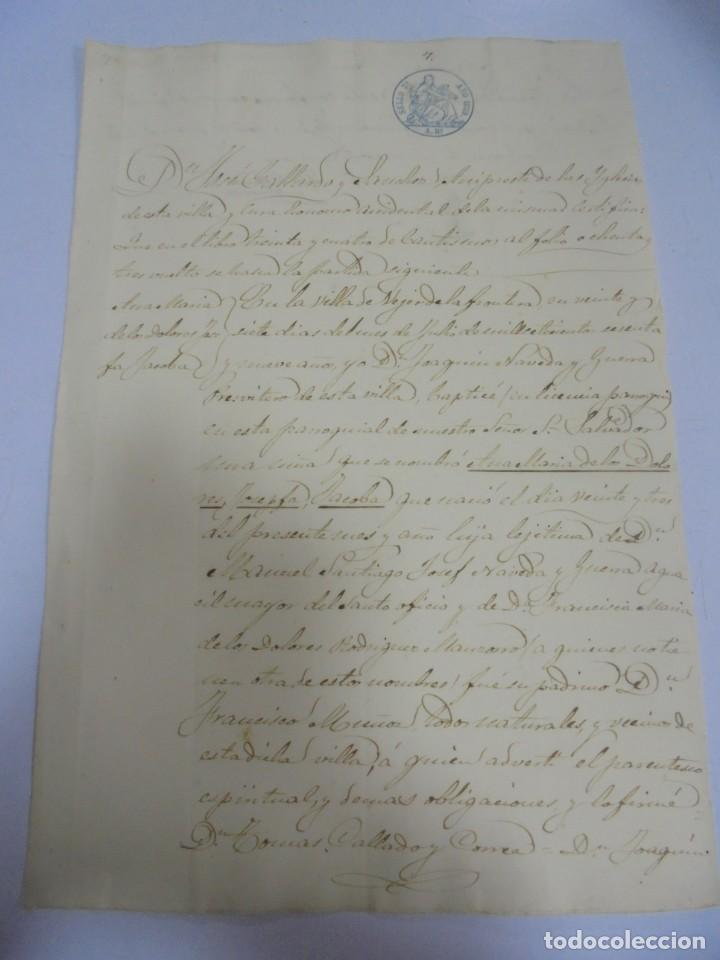 SELLO
AÑO
Dn José Gallardo y Arcipreste de las Yglesia
de esta villa y Cura Economo incidental de la misma Certifico:
Que en el libro treinta y cuatro de bautismos al folio ochenta y
tres vuelto se haya la partida siguiente
Ana Maria En la villa de Vejer de la frontera, en veinte y
de los Dolores Jose siete dias del mes de Julio de mil setecientos sesenta
fa Jacoba y nueve años, yo Dn Joaquin Naveda y Guerra
Presvitero de esta villa, bapticé (in licencia parroqui)
en esta parroquial de nuestro Señor Sn Salvador
una niña que se nombró Ana Maria de los Dolo
res, Josepfa, Jacoba que nació el dia veinte y tres
del presente mes y año hija lejitima de Dn
Manuel Santiago Josef Naveda y Guerra agua
cil mayor del Santo oficio y de Da Francisca Maria
de los Dolores Rodriguez Manzorro (a quienes no tie
nen otra de estos nombres) fué su padrino Dn
Francisco Muñoz todos naturales, y vecinos de
esta dicha villa, á quien advertí el parentesco
espiritual, y demas obligaciones, y lo firmé =
Dn Tomas Callado y Correa = Dn Joaquin
todocoleccion
todocoleccion.net